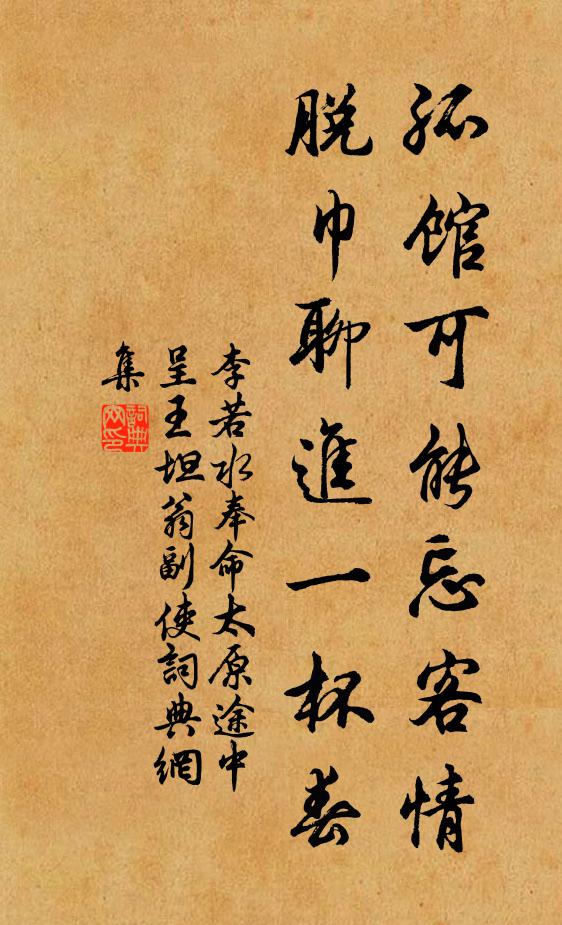 孤館可能忘客情
脫巾聊進一杯春
李若水奉命太原途中
呈王坦翁副使詞典網
集
詞典網印